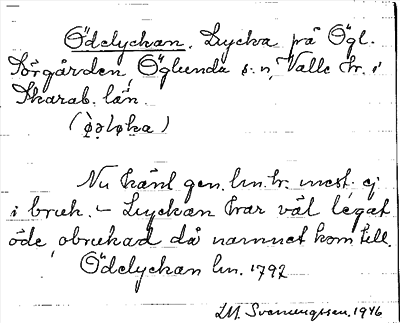 Ödelyckan. Lycka på Ögl.
Sörgården, Öglunda s:n, Valle hr. i
Skarab. län.
Nu känt gen. lm.hr. mest. ej
i bruk. – Lyckan har väl legat
öde, obrukad då namnet kom till.
Ödelyckan lm. 1792
1946